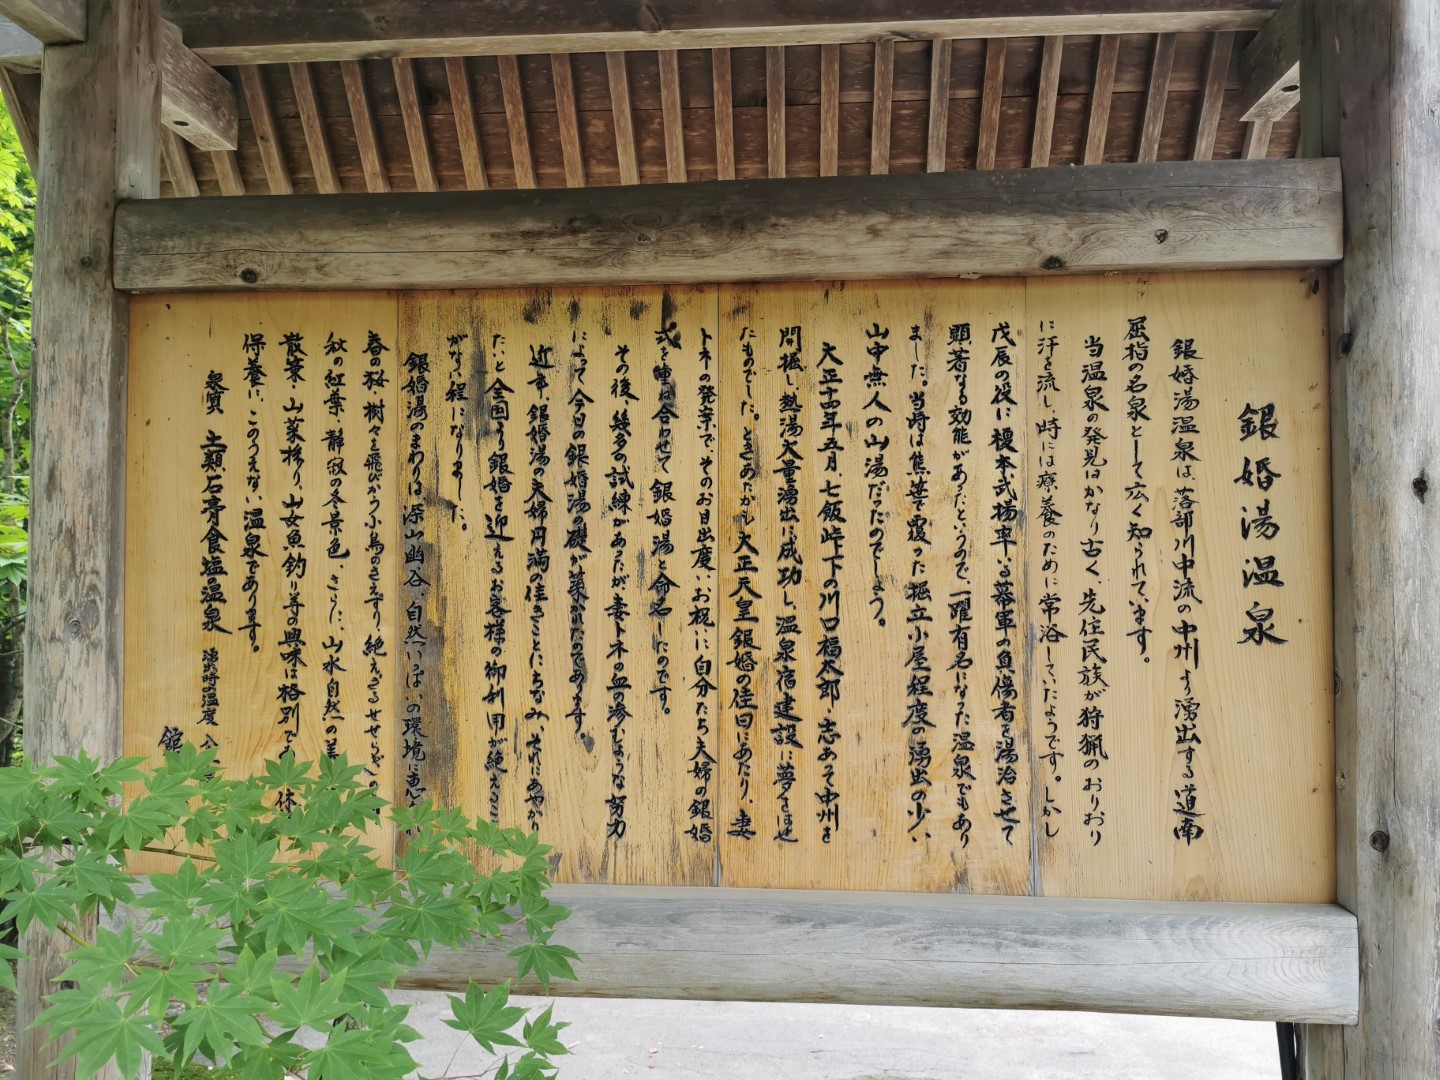 銀婚湯温泉
銀婚湯温泉は、落部川中流の中州より湧出する道南
屈指の名泉として広く知られています。
当温泉の発見はかなり古く、先住民族が狩猟のおりおり
に汗を流し、時には療養のために常浴していたようです。しかし
戊辰の役に榎本武揚率いる幕軍の負傷者を湯治させて
顕著なる効能があったというので、一躍有名になった温泉でもあり
ました。当時は熊笹で覆った掘立小屋程度の湧出の少い
山中無人の山湯だったのでしょう。
大正十四年五月、七飯峠下の川口福太郎・志あそ中州を
開掘し、熱湯大量湧出に成功し、温泉宿建設に夢をはせ
たものでした。ときあたかも大正天皇銀婚の佳日にあたり、妻
トネの発案で、そのお目出度いお祝に自分たち夫婦の銀婚
式を重ね合わせて銀婚湯と命名したのです。
その後、幾多の試練があったが妻トネの血の滲むような努力
によって今日の銀婚湯の礎が築かれたのであります。
近年、銀婚湯の夫婦円満の佳きことにちなみ、それにあやかり
たいと全国より銀婚を迎えるお客様の御利用が絶えるこ
がない程になりました。
銀婚湯のまわりは、深山幽谷、自然いっぱいの環境に恵
春の桜、樹々を飛びかう小鳥のさえずり、絶えざるせせらぎ
秋の紅葉、静寂の冬景色、さらに、山水自然の美
散策・山菜採り、山女魚釣り等の興味は格別であ 休
保養に、このうえない温泉であります。
泉質 土類石膏食塩温泉 湧出時の温度
銀